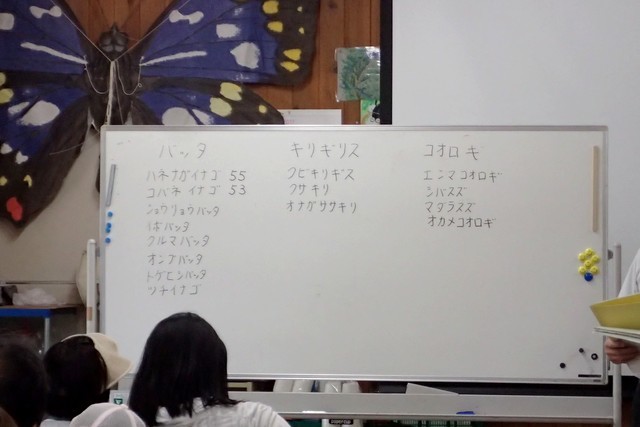 バッタ
ハネナガイナゴ 55
コバネイナゴ 53
ショウリョウバッタ
イボバッタ
クルマバッタ
オンブバッタ
トゲヒシバッタ
ツチイナゴ
キリギリス
クビキリギス
クサキリ
オナガササキリ
コオロギ
エンマコオロギ
シバスズ
マダラスズ
オカメコオロギ